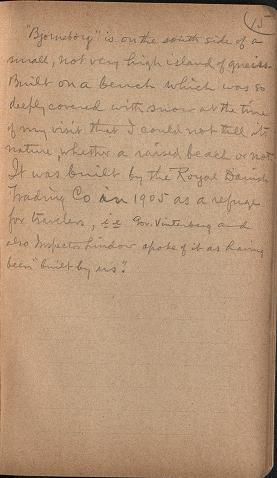 15
"Bjorneborg" is on the south side of a
small, not very high island of gneiss.
Built on a bench which was so
deeply covered with snow at the time
of my visit that I could not tell its
nature, whether a raised beach or not.
It was built by the Royal Danish
Trading Co in 1905 as a refuge
for travelers, i.e. Gov. Vinterberg and
also Inspector Lindow spoke of it as having
been "built by us".